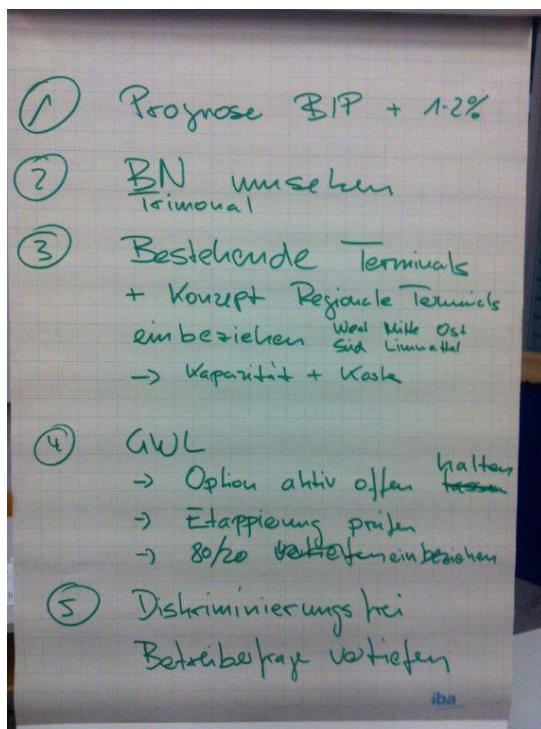 1 Prognose BIP + 1-2%
2 BN umsetzen
Trimonal
3 Bestehende Terminals
+ Konzept Regionale Terminals
einbeziehen West Mitte Ost
Süd Limmattal
→ Kapazität + Koste
4 GWL
→ Option aktiv offen halten
lassen
→ Etappierung prüfen
→ 80/20 vertiefen einbeziehen
5 Diskriminierungsfrei
Betreiberfrage vertiefen
iba